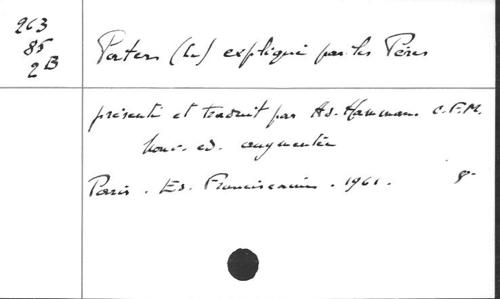 263
85
2B
Pater (Le) expliqué par les Pères
présenté et traduit par Ad. Hamman. O.F.M.
nouv. ed. augmentée
Paris. Ed. Franciscaines. 1961. 8°